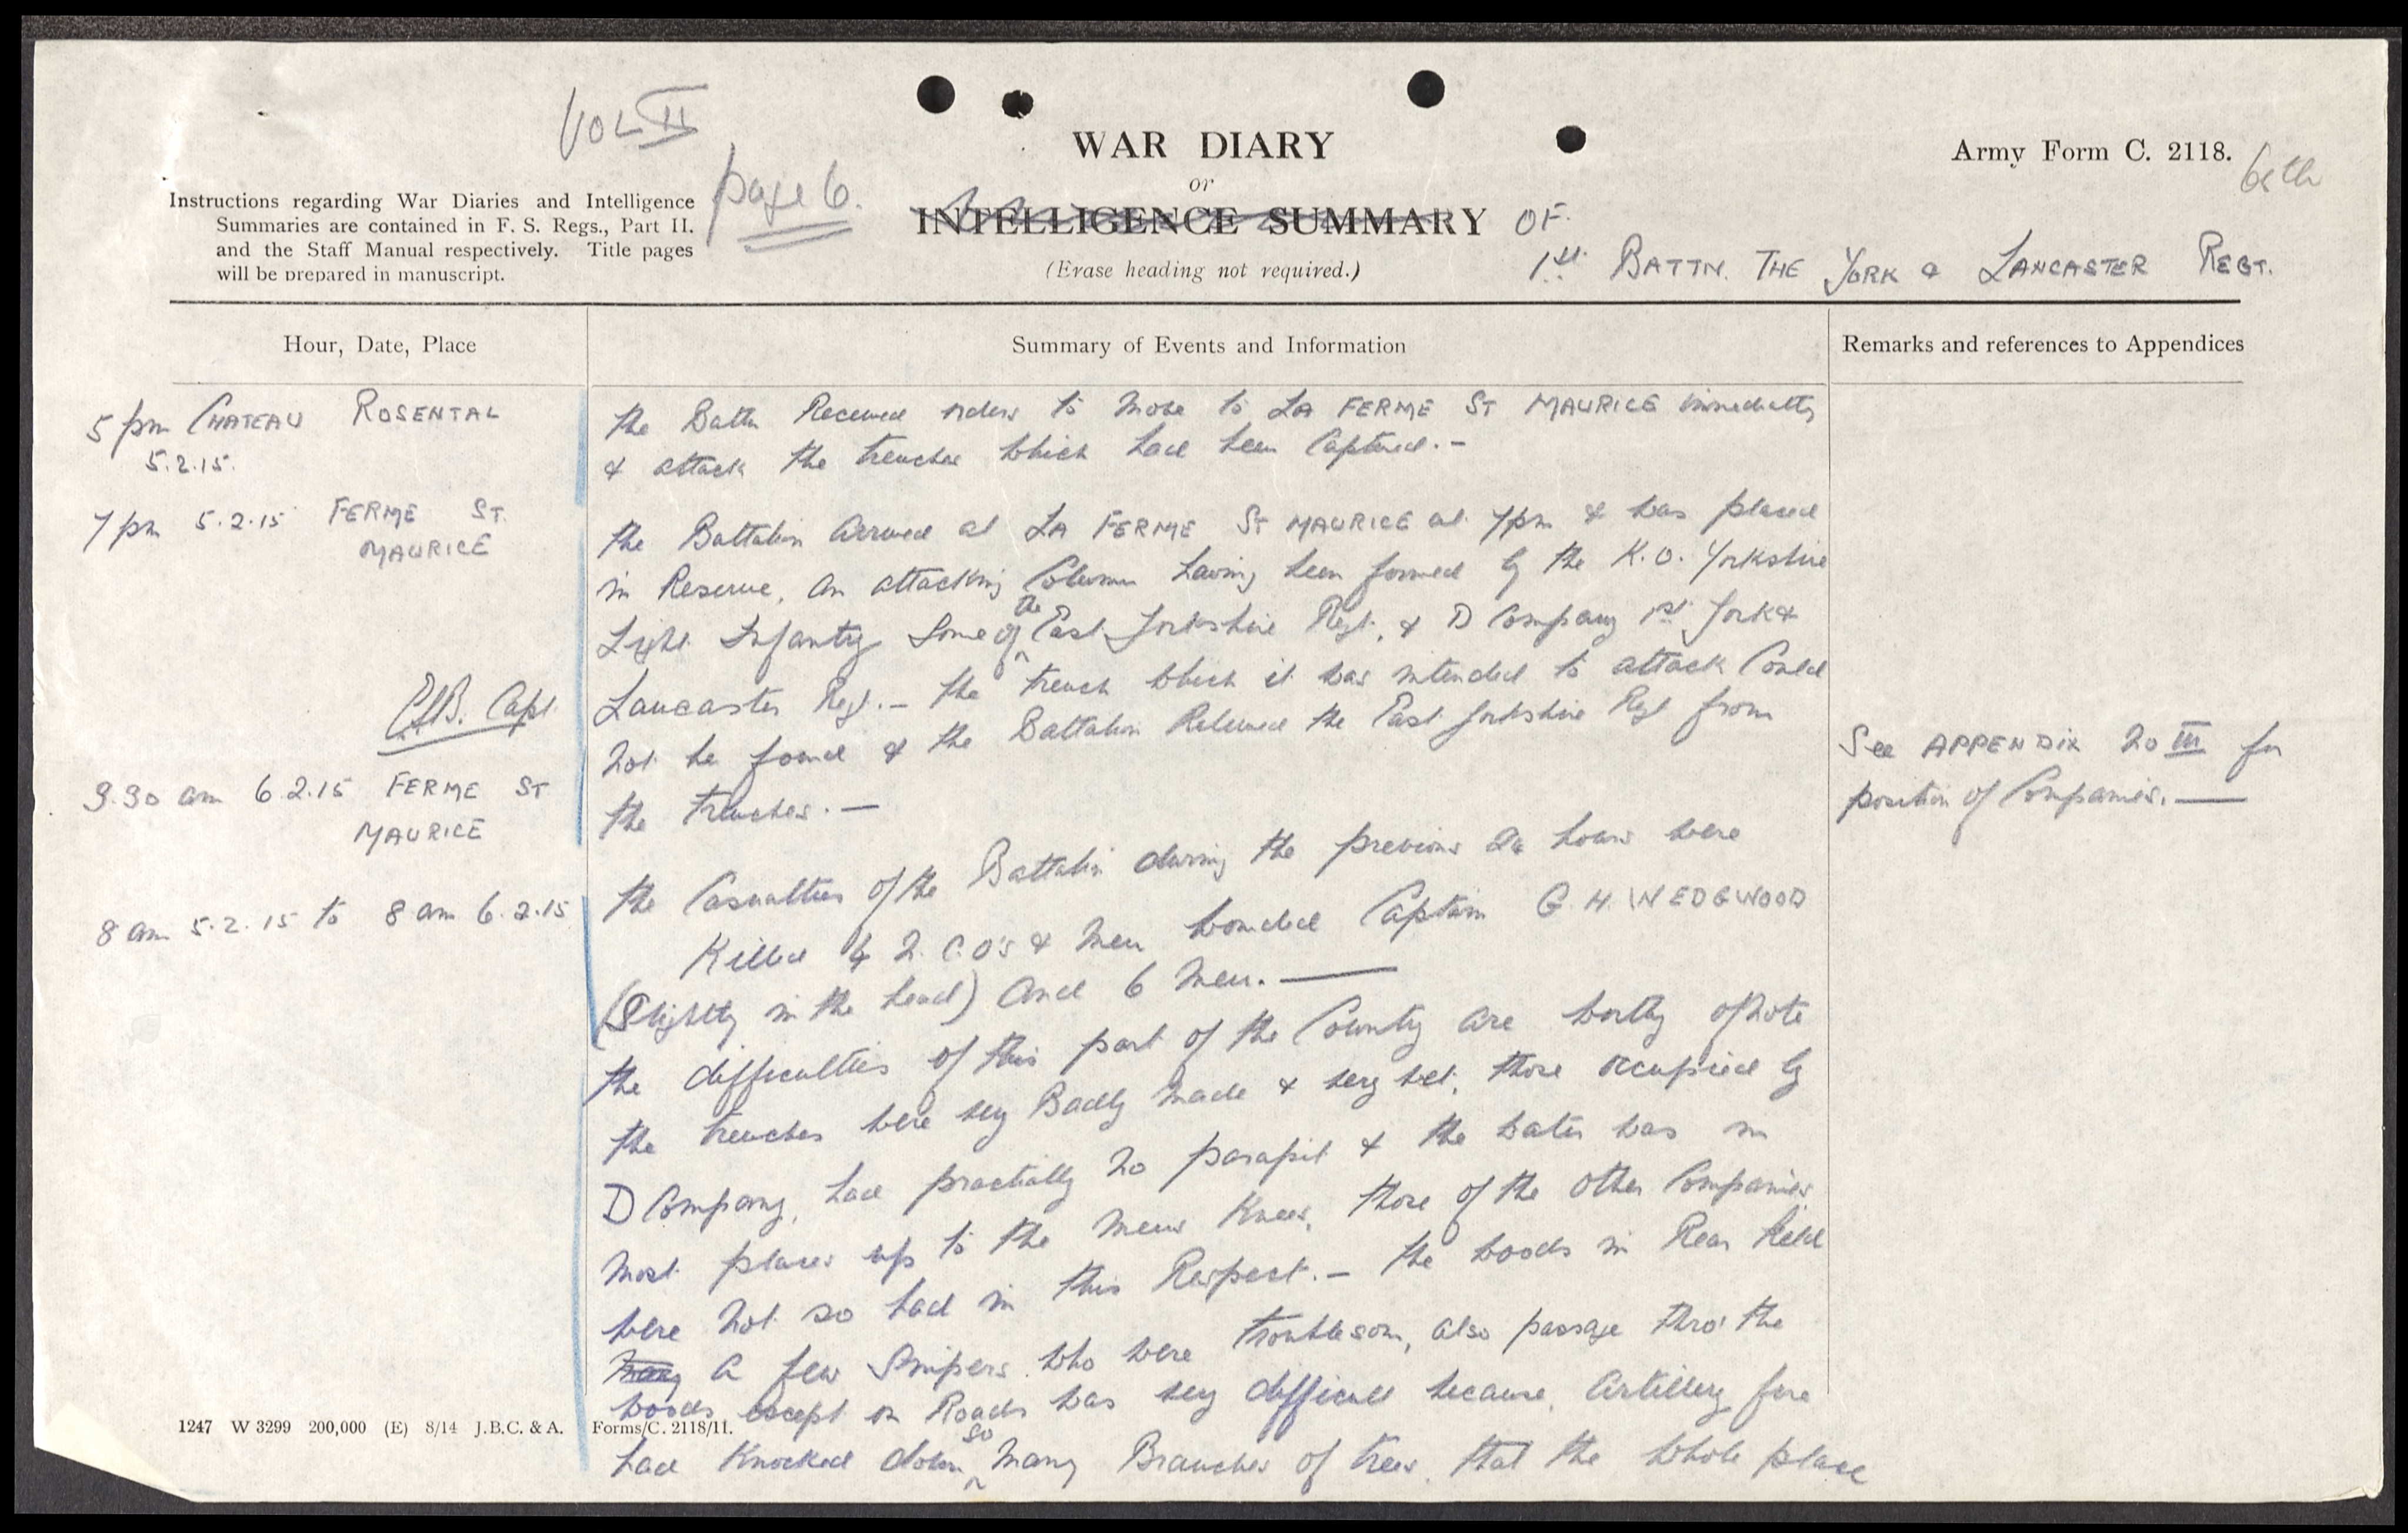 VOL II
page 6.
WAR DIARY
or
INTELLIGENCE SUMMARY
(Erase heading not required.)
OF.
1st. BATTN. THE YORK & LANCASTER REGT.
Army Form C. 2118.
Instructions regarding War Diaries and Intelligence
Summaries are contained in F. S. Regs., Part II.
and the Staff Manual respectively. Title pages
will be prepared in manuscript.
Hour, Date, Place
Summary of Events and Information
Remarks and references to Appendices
5 pm CHATEAU ROSENTAL
5.2.15.
the Battn Received orders to move to LA FERME ST MAURICE immediately
& attack the trenches which had been Captured. -
7 pm 5.2.15 FERME ST.
MAURICE
the Battalion arrived at LA FERME ST MAURICE at 7pm & was placed
in Reserve, an attacking Column having been formed by the K.O. Yorkshire
Light Infantry some of the East Yorkshire Regt, & D Company 1st York &
Lancaster Regt. - the trench which it was intended to attack could
not be found & the Battalion Relieved the East Yorkshire Regt from
the trenches. -
Capt.
9.30 am 6.2.15 FERME ST
MAURICE
See APPENDIX No III for
position of Companies. -
8 am 5.2.15 to 8 am 6.2.15
the Casualties of the Battalion during the previous 24 hours were
Killed 4 N.C.O's & men wounded Captain G.H. WEDGWOOD
(Slightly in the head) and 6 men. -
the difficulties of this part of the Country are worthy of note
the trenches were very Badly made & very wet, those occupied by
D Company, had practially no parapit & the water was in
most places up to the mens Knees, those of the other Companies
were not so bad in this Respect. - the woods in Rear held
many a few Snipers who were troublesom, also passage thro' the
woods except on Roads was very difficult because, artillery fire
had knocked down so many Branches of trees, that the whole place
1247 W 3299 200,000 (E) 8/14 J.B.C. & A. Forms/C. 2118/11.